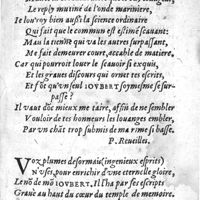 Le repliy mutiné de l'onde mariniere,
Ie louroy bien außi la science ordinaire
Qui fait que le commun est estimé sçauant:
Mau la tienne qui va les autres surpassant,
Me fait demeurer court, accablé de matiere,
Car qui pourroit louer le sçauoir si exquis,
Et les graues discours qui ornet tes escrits,
Et foc qu'vn seul IOVBERT soymesme se surpasse?
Il vaut dõc mieux me taire, affin de ne sembler
Vouloir de tes honneurs les louanges embler,
Par vn chãt trop submis de ma rime si basse.
P. Reueillei.
Vox plumes desormais (ingenieux esprits)
N vses, pour enrichir d'vne eternelle gloire,
Le nõ de mõ IOVBERT, Il l'ha par ses escripts
Graué au haut du cœur du temple de memoire.